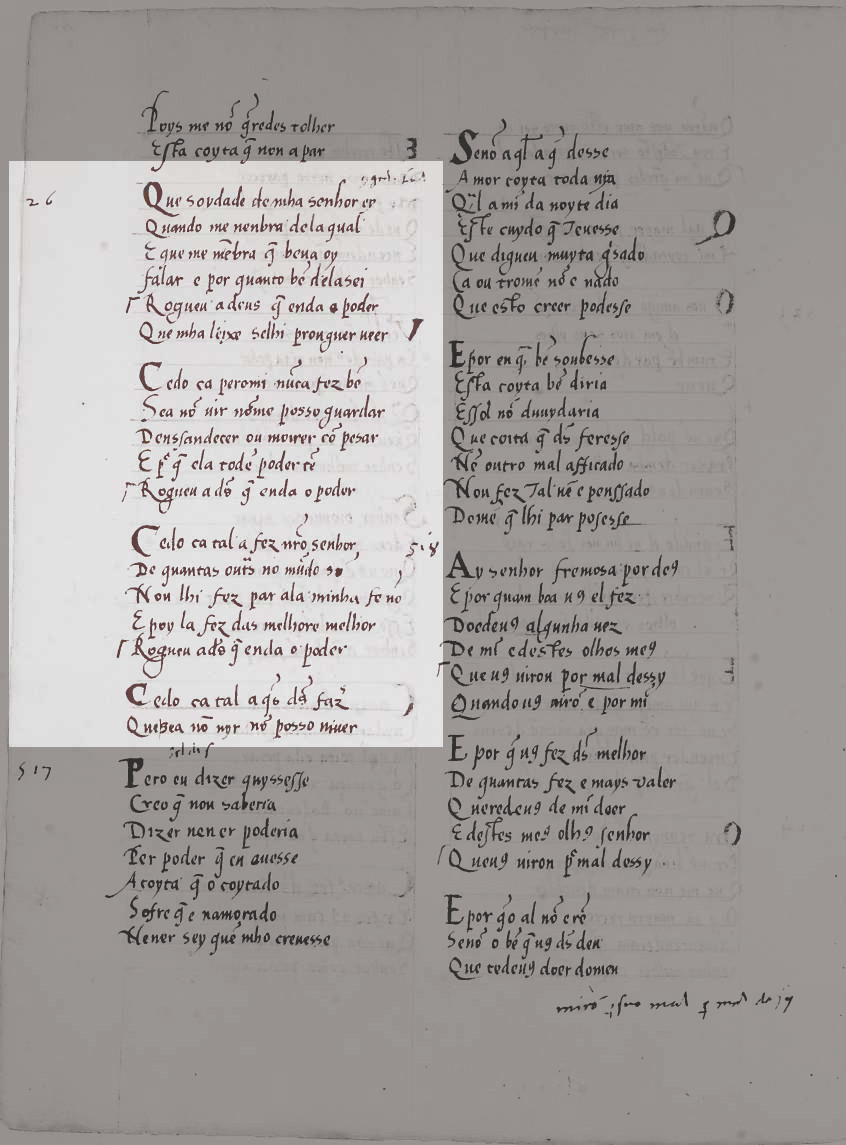 Poys me nō q̄redes tolher
Esta coyta q̄ non a par
26
Que soydade de mha senhor ey
Quando me nenbra dela qual
E que me nēbra q̄ ben a oy
falar e por quanto bē dela sei
Rogueu a deus q̄ end a o poder
Que mha leixe selhi prouguer ueer
Cedo ca peromi nūca fez bē
Sea nō uir nōme posso guardar
Denssandecer ou morrer cō pesar
E pr̄ q̄ ela tode poder tē
Rogueu a ds̄ q̄ enda o poder
Cedo ca tal a fez nrō senhor
518
De quantas outs̄ no mūdo sō
Non lhi fez par ala minha fe nō
E poy la fez das melhore melhor
Rogueu a ds̄ q̄ enda o poder
Cedo ca tal a q̄s ds̄ faz̄
Quesea nō uyr nō posso uiuer
517
Pero eu dizer quysesse
Creo q̄ non saberia
Dizer nen er poderia
Per poder q̄ eu ouesse
A coyta q̄ o coytado
Sofre q̄ e namorado
Nener sey quē mho creuesse
Senō aql̄ a q̄ desse
Amor coyta toda uya
Qīl a mī da noyte dia
Este cuydo q̄ Teuesse
Que digueu muyta gⁱsado
Ca ou trome nō e nado
Que esto creer podesse
E por en q̄ bē soubesse
Esta coyta bē diria
Essol nō duuydaria
Que coita q̄ ds̄ fezesse
Nē outro mal afficado
Non fez Tal nē e penssado
Dome q̄ lhi par posesse
Ay senhor fremosa por de9
E por quam boa u9 el fez
Doede u9 algunha uez
De mī e destes olhos me9
Que u9 uiron por mal dessy
Quando u9 uirō e por mī
E por q̄ u9 fez ds̄ melhor
De quantas fez e mays ualer
Queredeu9 de mī doer
E destes me9 olh9 senhor
Queu9 uiron pr̄ mal dessy
E por q̄o al nō erē
Senō o bē q̄ u9 ds̄ deu
Que redeu9 doer domeu